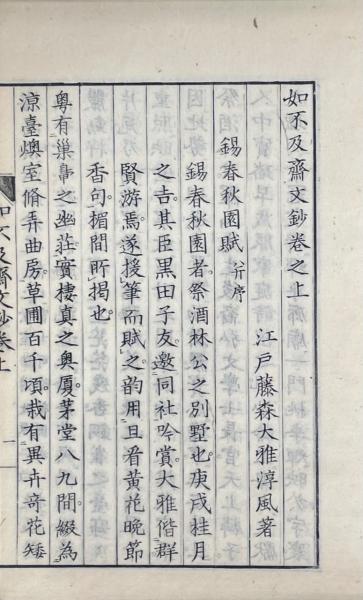 如不及齋文鈔卷之上
錫春秋園賦 幷序
江戸藤森大雅淳風著
錫春秋園者。祭酒林公之別墅也。庚戌桂月
之吉。其臣黒田子友。邀同社吟賞。大雅偕群
賢游焉。遂援筆而賦之。韵用且看黃花晩節
香句。楣間所揭也。
粤有巢之幽莊。實棲真之奧厦。茅堂八九間。綴為
涼臺燠室脩弄曲房。草圃百千頃。栽有異卉奇花矮
如不及齋文鈔卷上 一